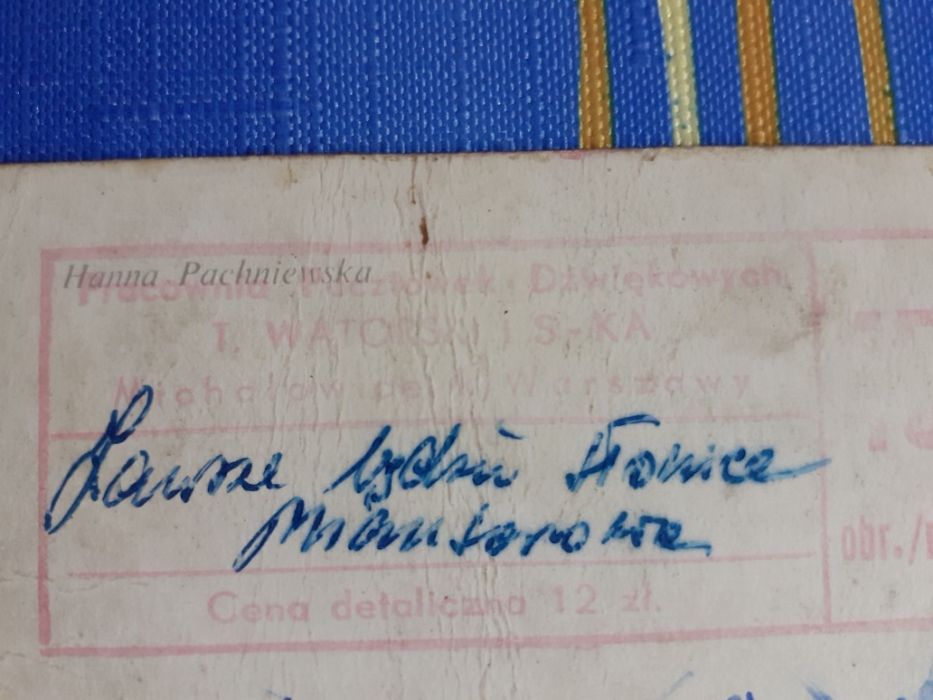 Hanna Pachniewska
Pracownia Pocztówek Dźwiękowych
T. WATORSKI i S-KA
Michałowice k. Warszawy
Zawsze będziu słońce
Cena detaliczna 12 zł.
obr./